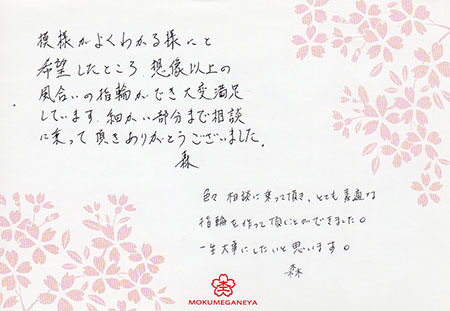 模様がよくわかる様にと
希望したところ 想像以上の
風合いの指輪ができ大変満足
しています。細かい部分まで相談
に乗って頂きありがとうございました。
森
色々 相談に乗って頂き、とても素適な
指輪を作って頂くことができました。
一生大事にしたいと思います。
森
MOKUMEGANEYA